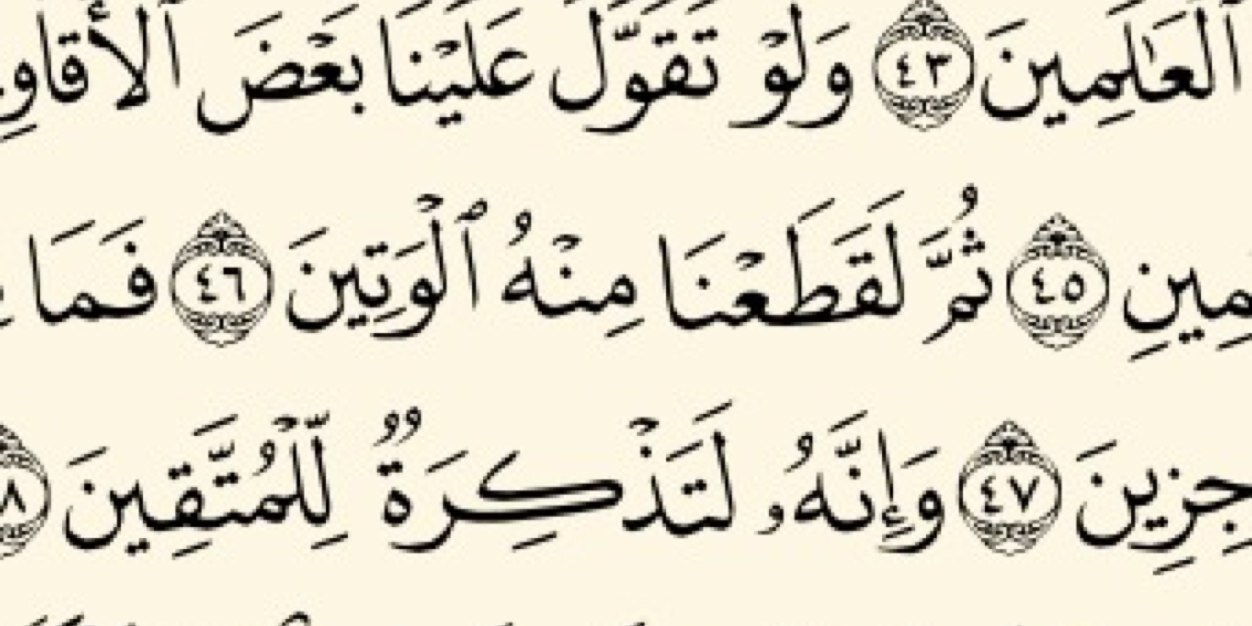 ٱلْعَٰلَمِينَ ٤٣ وَلَوْ تَقَوَّلَ عَلَيْنَا بَعْضَ ٱلْأَقَاوِ
مِينِ ٤٥ ثُمَّ لَقَطَعْنَا مِنْهُ ٱلْوَتِينَ ٤٦ فَمَا
جِزِينَ ٤٧ وَإِنَّهُۥ لَتَذْكِرَةٌ لِّلْمُتَّقِينَ ٨